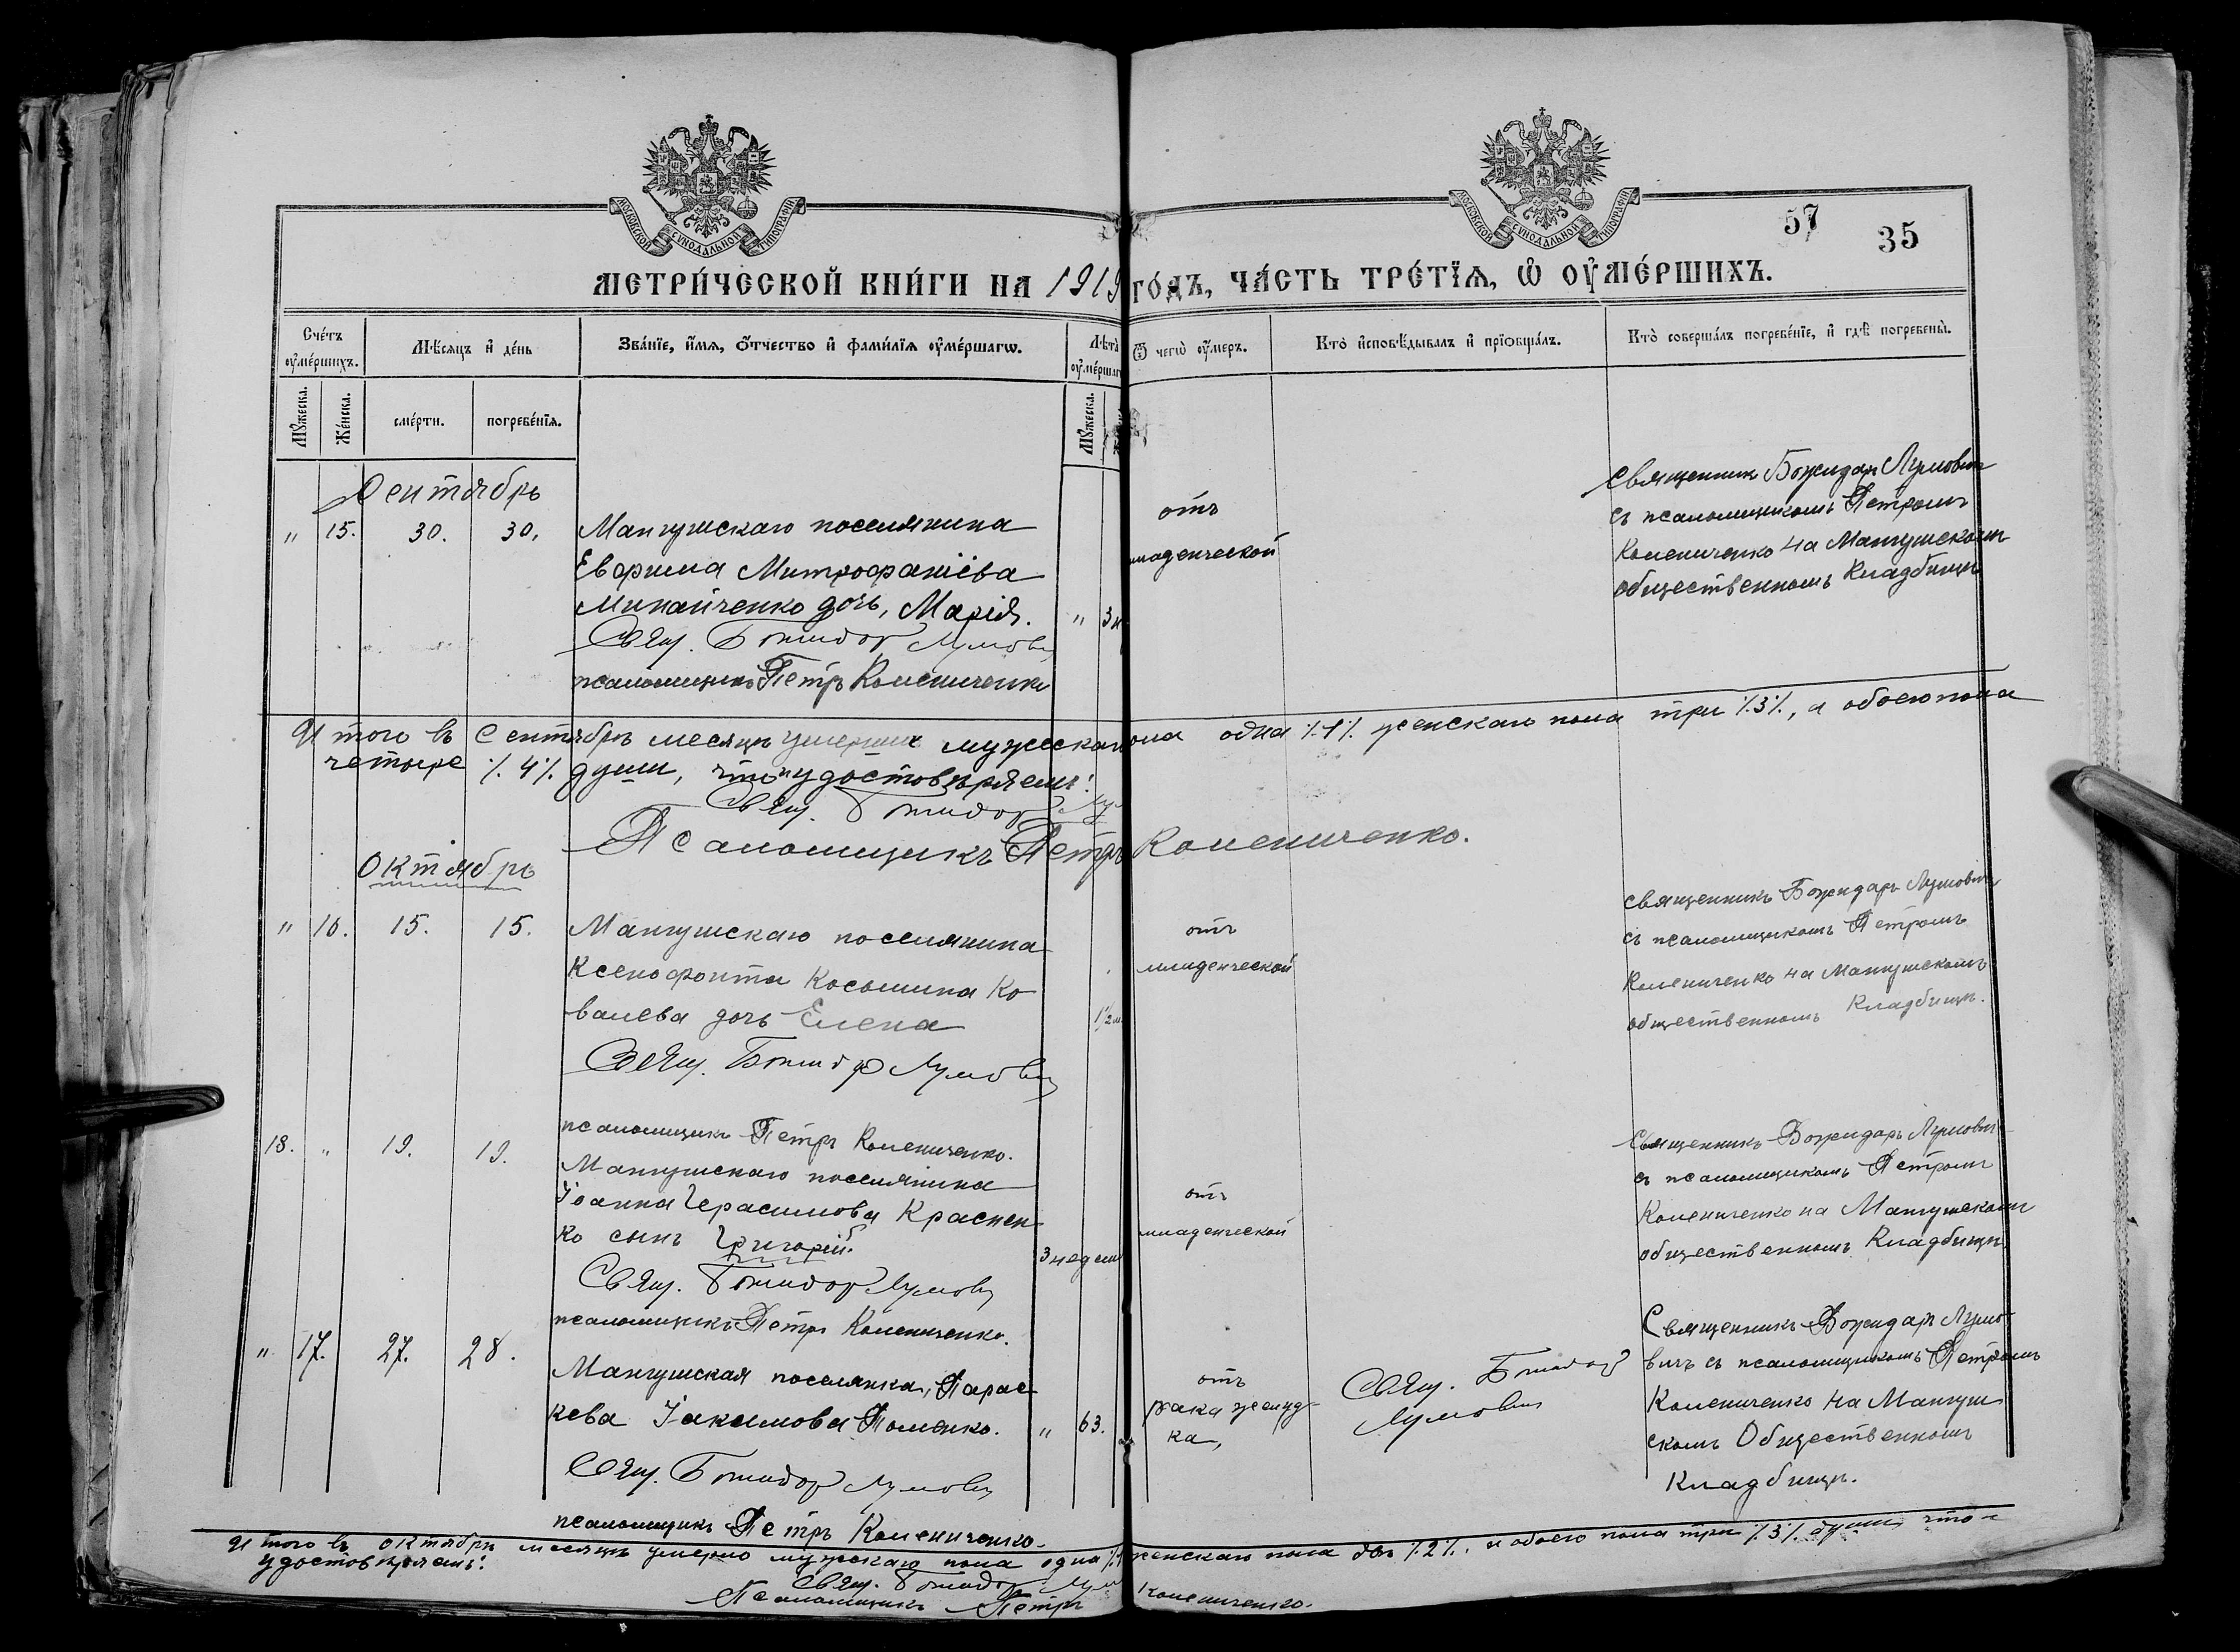 МОСКОВСКОЙ СѴНОДАЛЬНОЙ ТИПОГРАФІИ
МОСКОВСКОЙ СѴНОДАЛЬНОЙ ТИПОГРАФІИ
57
35
МЕТРИ́ЧЕСКОЙ КНИ́ГИ НА 1919 ГО́ДЪ, ЧА́СТЬ ТРЕ́ТЇѦ, Ѡ҆ ОУ҆МЕ́РШИХЪ.
Сче́тъ оу҆ме́ршихъ.
Мѣ́сяцъ и҆ де́нь
Зва́нїе, и҆́мѧ, ѻ҆́тчество и҆ фами́лїѧ оу҆ме́ршагѡ.
Лѣта̀
оу҆ме́ршаг
Ѿ чегѡ̀ оу҆́меръ.
Кто̀ и҆сповѣ́дывалъ и҆ прїѻбща́лъ.
Кто̀ соверша́лъ погребе́нїе, и҆ гдѣ̀ погребены̀.
Мꙋ́жеска.
Же́нска.
сме́рти.
погребе́нїѧ.
Мꙋ́жеска.
Сентябрь
" 15. 30. 30.
Мангушскаго поселянина
Евфима Митрофаніева
Минайченко дочь, Марія. "
Свящ. Божидар Лумович
псаломщикъ Петръ Колениченко
отъ
младенческой
Священникъ Божидаръ Лумович
съ псаломщикомъ Петромъ
Колениченко на Мангушскомъ
общественномъ Кладбищѣ
Итого въ Сентябрѣ месяцѣ умерших мужескаго пола одна ./.1./. женскаго пола три ./.3./., а обоего пола
четыре ./.4./. души, что и удостовѣряемъ:
Свящ. Божидар Лу
Псаломщикъ Петръ Колениченко.
Октябрь
" 16. 15. 15.
Мангушскаго поселянина
Ксенофонта Косьмина Ко
валева дочь Елена
1½ м.
Свящ. Божидар Лумович
псаломщикъ Петръ Колениченко.
отъ
младенческой
Священникъ Божидаръ Лумовичъ
съ псаломщикомъ Петромъ
Колениченко на Мангушскомъ
общественномъ Кладбищѣ.
18. " 19. 19.
Мангушскаго поселянина
Іоанна Герасимова Краснен
ко сынъ Григорій.
3 недели
Свящ. Божидар Лумович
псаломщикъ Петръ Колениченко.
отъ
младенческой
Священникъ Божидаръ Лумович
съ псаломщикомъ Петромъ
Колениченко на Мангушскомъ
общественномъ Кладбищѣ
" 17. 27. 28.
Мангушская поселянка, Парас
кева Іакимова Поленко. " 63.
Свящ. Божидар Лумович
псаломщикъ Петръ Колениченко.
отъ
рака желуд-
ка,
Свящ. Божидар
Лумович
Священникъ Божидаръ Лумо-
вичъ съ псаломщикомъ Петромъ
Колениченко на Мангуш
скомъ Общественномъ
Кладбищѣ.
Итого въ октябрѣ месяцѣ умерло мужескаго пола одна ./.1 женскаго пола двѣ ./.2./. и обоего пола три ./.3./. души, что и
удостовѣряемъ:
Свящ. Божидар Лум
Псаломщикъ Петръ Колениченко.